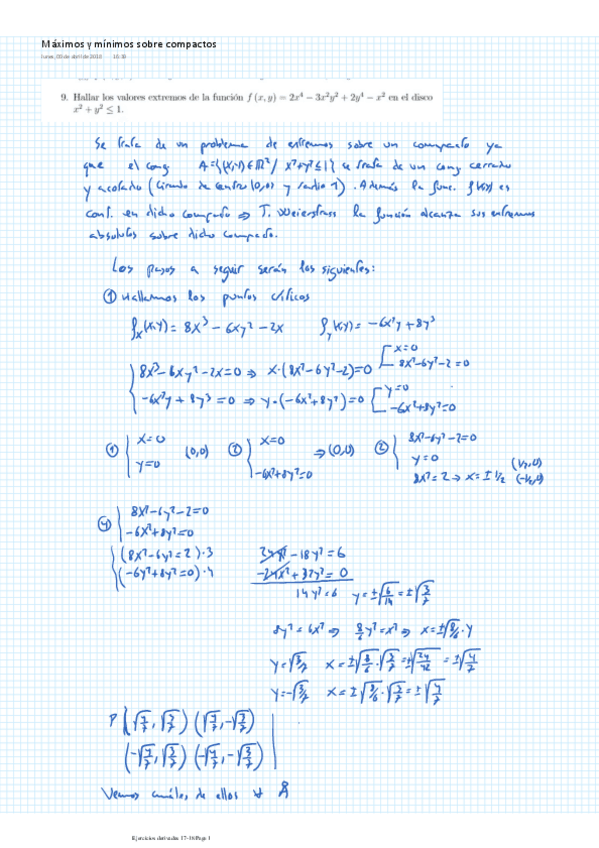 Máximos y mínimos sobre compactos
lunes, 09 de abril de 2018 16:30
9. Hallar los valores extremos de la función f (x, y) = 2x⁴ − 3x²y² + 2y⁴ − x² en el disco
x² + y² ≤ 1.
Se trata de un problema de extremos sobre un compacto ya
que el conj A={(x,y)∈ℝ²/ x²+y²≤1} se trata de un conj cerrado
y acotado (círculo de centro (0,0) y radio 1). Además la func. f(x,y) es
cont. en dicho compacto ⇒ T. Weierstrass la función alcanza sus extremos
absolutos sobre dicho compacto.
Los pasos a seguir serán los siguientes:
① Hallamos los puntos críticos
fx(x,y) = 8x³ − 6xy² − 2x fy(x,y) = −6x²y + 8y³
8x³−6xy²−2x=0 ⇒ x·(8x²−6y²−2)=0 [ x=0
8x²−6y²−2=0
−6x²y + 8y³ = 0 ⇒ y·(−6x²+8y²)=0 [ y=0
−6x²+8y²=0
① { x=0
y=0 (0,0)
② { x=0
−6x²+8y²=0 ⇒ (0,0)
② { 8x²−6y²−2=0
y=0
8x²=2 → x=±1/2 (1/2,0) (−1/2,0)
④ { 8x²−6y²−2=0
−6x²+8y²=0
(8x²−6y²=2)·3 24x²−18y²=6
(−6y²+8y²=0)·4 −24x²+32y²=0
14y²=6 y=±√6/14=±√3/7
8y²=6x² ⇒ 8/6 y²=x² ⇒ x=±√8/6·y
y=√3/7 x=±√8/6·√3/7=±√24/42=±√4/7
y=−√3/7 x=±√8/6·√3/7=±√4/7
P (√4/7,√3/7) (√4/7,−√3/7)
(−√4/7,√3/7) (−√4/7,−√3/7)
Veamos cuáles de ellos ∈ Å
Ejercicios derivadas 17-18 Page 1